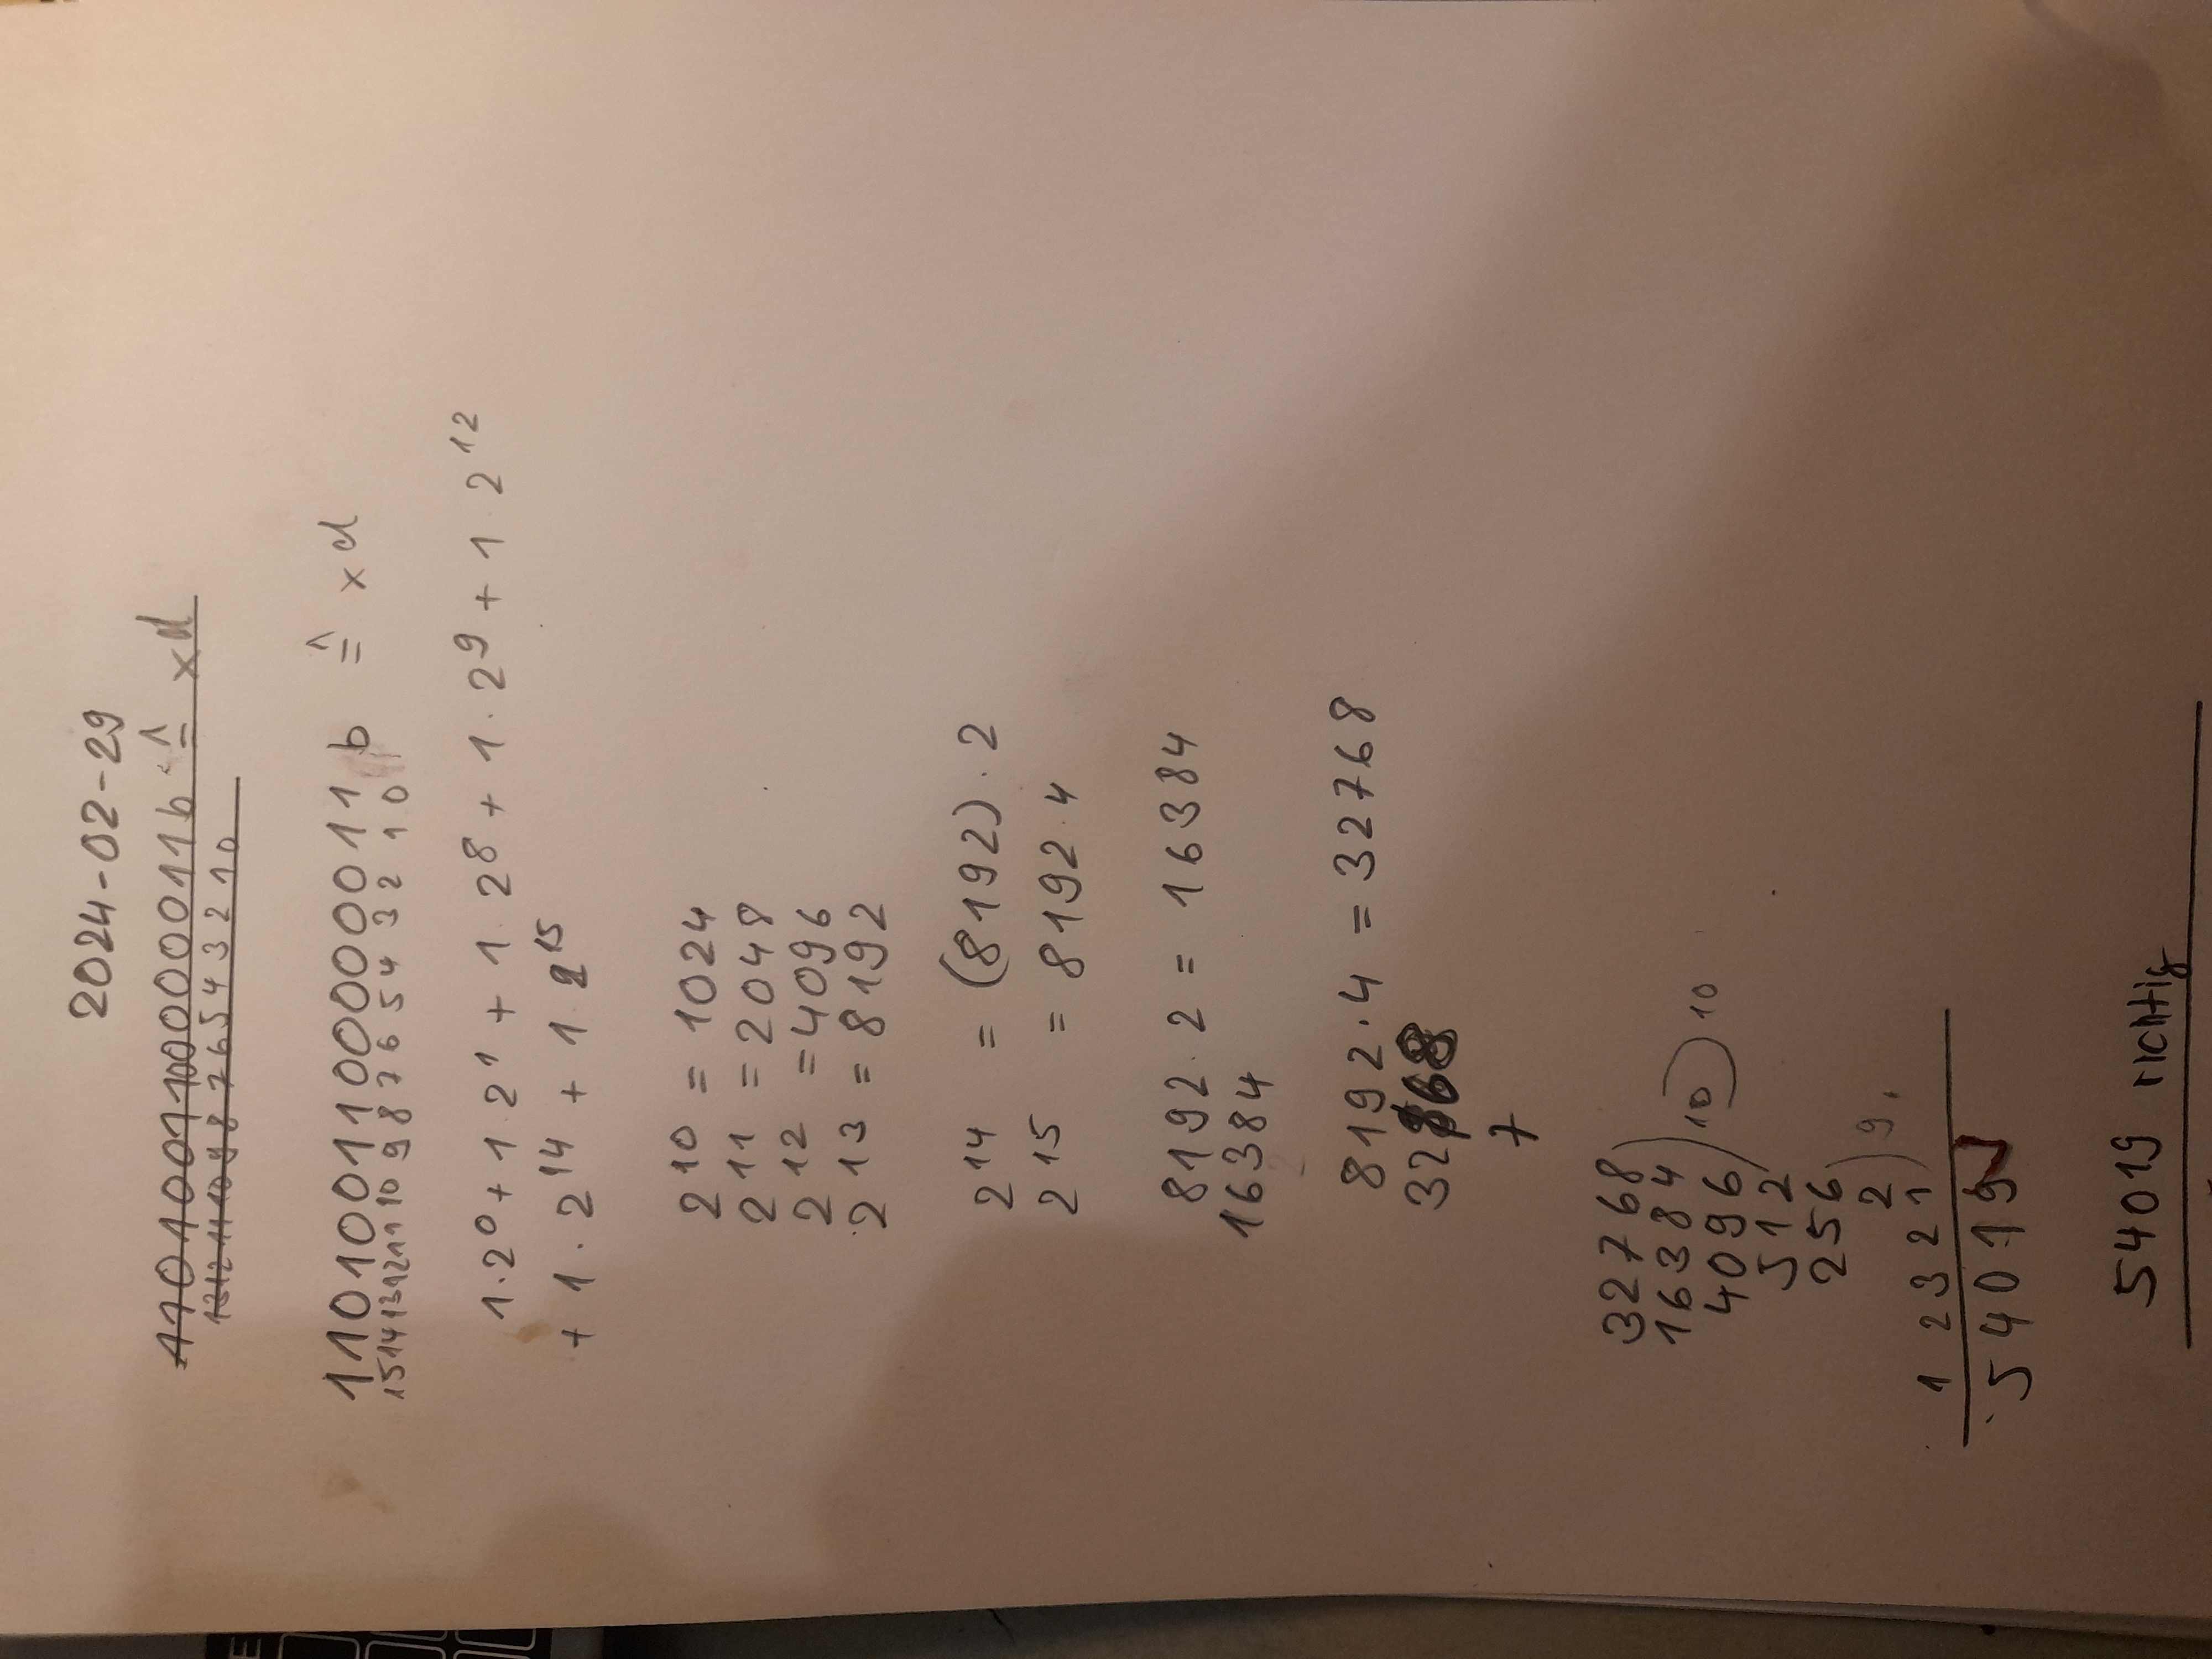 2024-02-29
1101001100000011b ≙ xd
13 12 11 10 9 8 7 6 5 4 3 2 1 0
1101001100000011 b ≙ xd
15 14 13 12 11 10 9 8 7 6 5 4 3 2 1 0
1·2⁰ + 1·2¹ + 1·2⁸ + 1·2⁹ + 1·2¹²
+ 1·2¹⁴ + 1·2¹⁵
2¹⁰ = 1024
2¹¹ = 2048
2¹² = 4096
2¹³ = 8192
2¹⁴ = (8192)·2
2¹⁵ = 8192·4
8192·2 = 16384
16384
8192·4 = 32768
32768
7
32768
16384 ) 10 ) 10
4096
512
256
2 ) 9
1 2 3 2 1
54019
54019 richtig